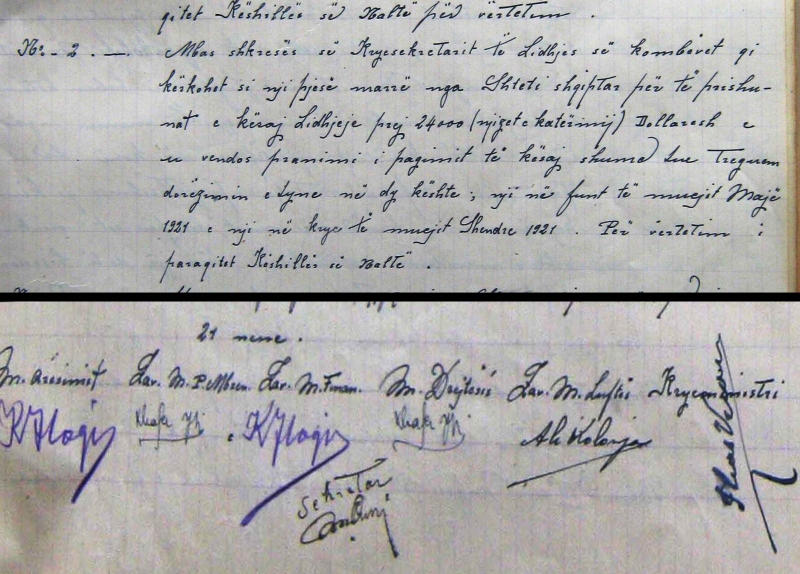 qitet Këshillës së Naltë për vërtetim .
No. - 2 . —. Mbas shkresës së Kryesekretarit të Lidhjes së kombëvet qi
kërkohet si nji pjesë marrë nga Shteti shqiptar për të prishu-
nat e kësaj Lidhjeje prej 24000 (njizet e katërmij) Dollaresh e
u vendos pranimi i pagimit të kësaj shumë tue Treguem
dorëzimin e tyne në dy kështe ; nji në funt të muejit Majë
1921 e nji në krye të muejit Shendre 1921 . Për vërtetim i
paraqitet Këshillës së Naltë .
21 nene .
M. Arësimit Zav. M. P. Mbren. Zav. M. Finan. M. Drejtësis Zav. M. Luftës Kryeministri
Hafiz
Ali Kolonja
Ilias Vrioni
Sekretar